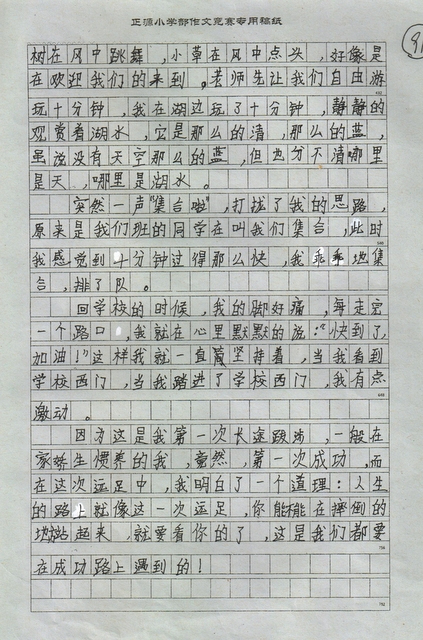 正源小学部作文竞赛专用稿纸
树在风中跳舞，小草在风中点头，好像是
在欢迎我们的来到。老师生让我们自由游
玩十分钟，我在湖边玩了十分钟，静静的
观赏着湖水，它是那么的清，那么的蓝，
虽说没有天空那么的蓝，但也分不清哪里
是天，哪里是湖水。
突然一声“集合啦”，打拢了我的思路，
原来是我们班的同学在叫我们集合，此时
我感觉到十分钟过得那么快，我乖乖地集
合，排了队。
回学校的时候，我的脚好痛，每走完
一个路口，我就在心里默默的说：“快到了，
加油！”这样我就一直坚持着，当我看到
学校西门，当我踏进了学校西门，我有点
激动。
因为这是我第一次长途跋涉，一般在
家娇生惯养的我，竟然，第一次成功，而
在这次远足中，我明白了一个道理：人生
的路上就像这一次远足，你能不能在摔倒的
地站起来，就要看你的了，这是我们都要
在成功路上遇到的！